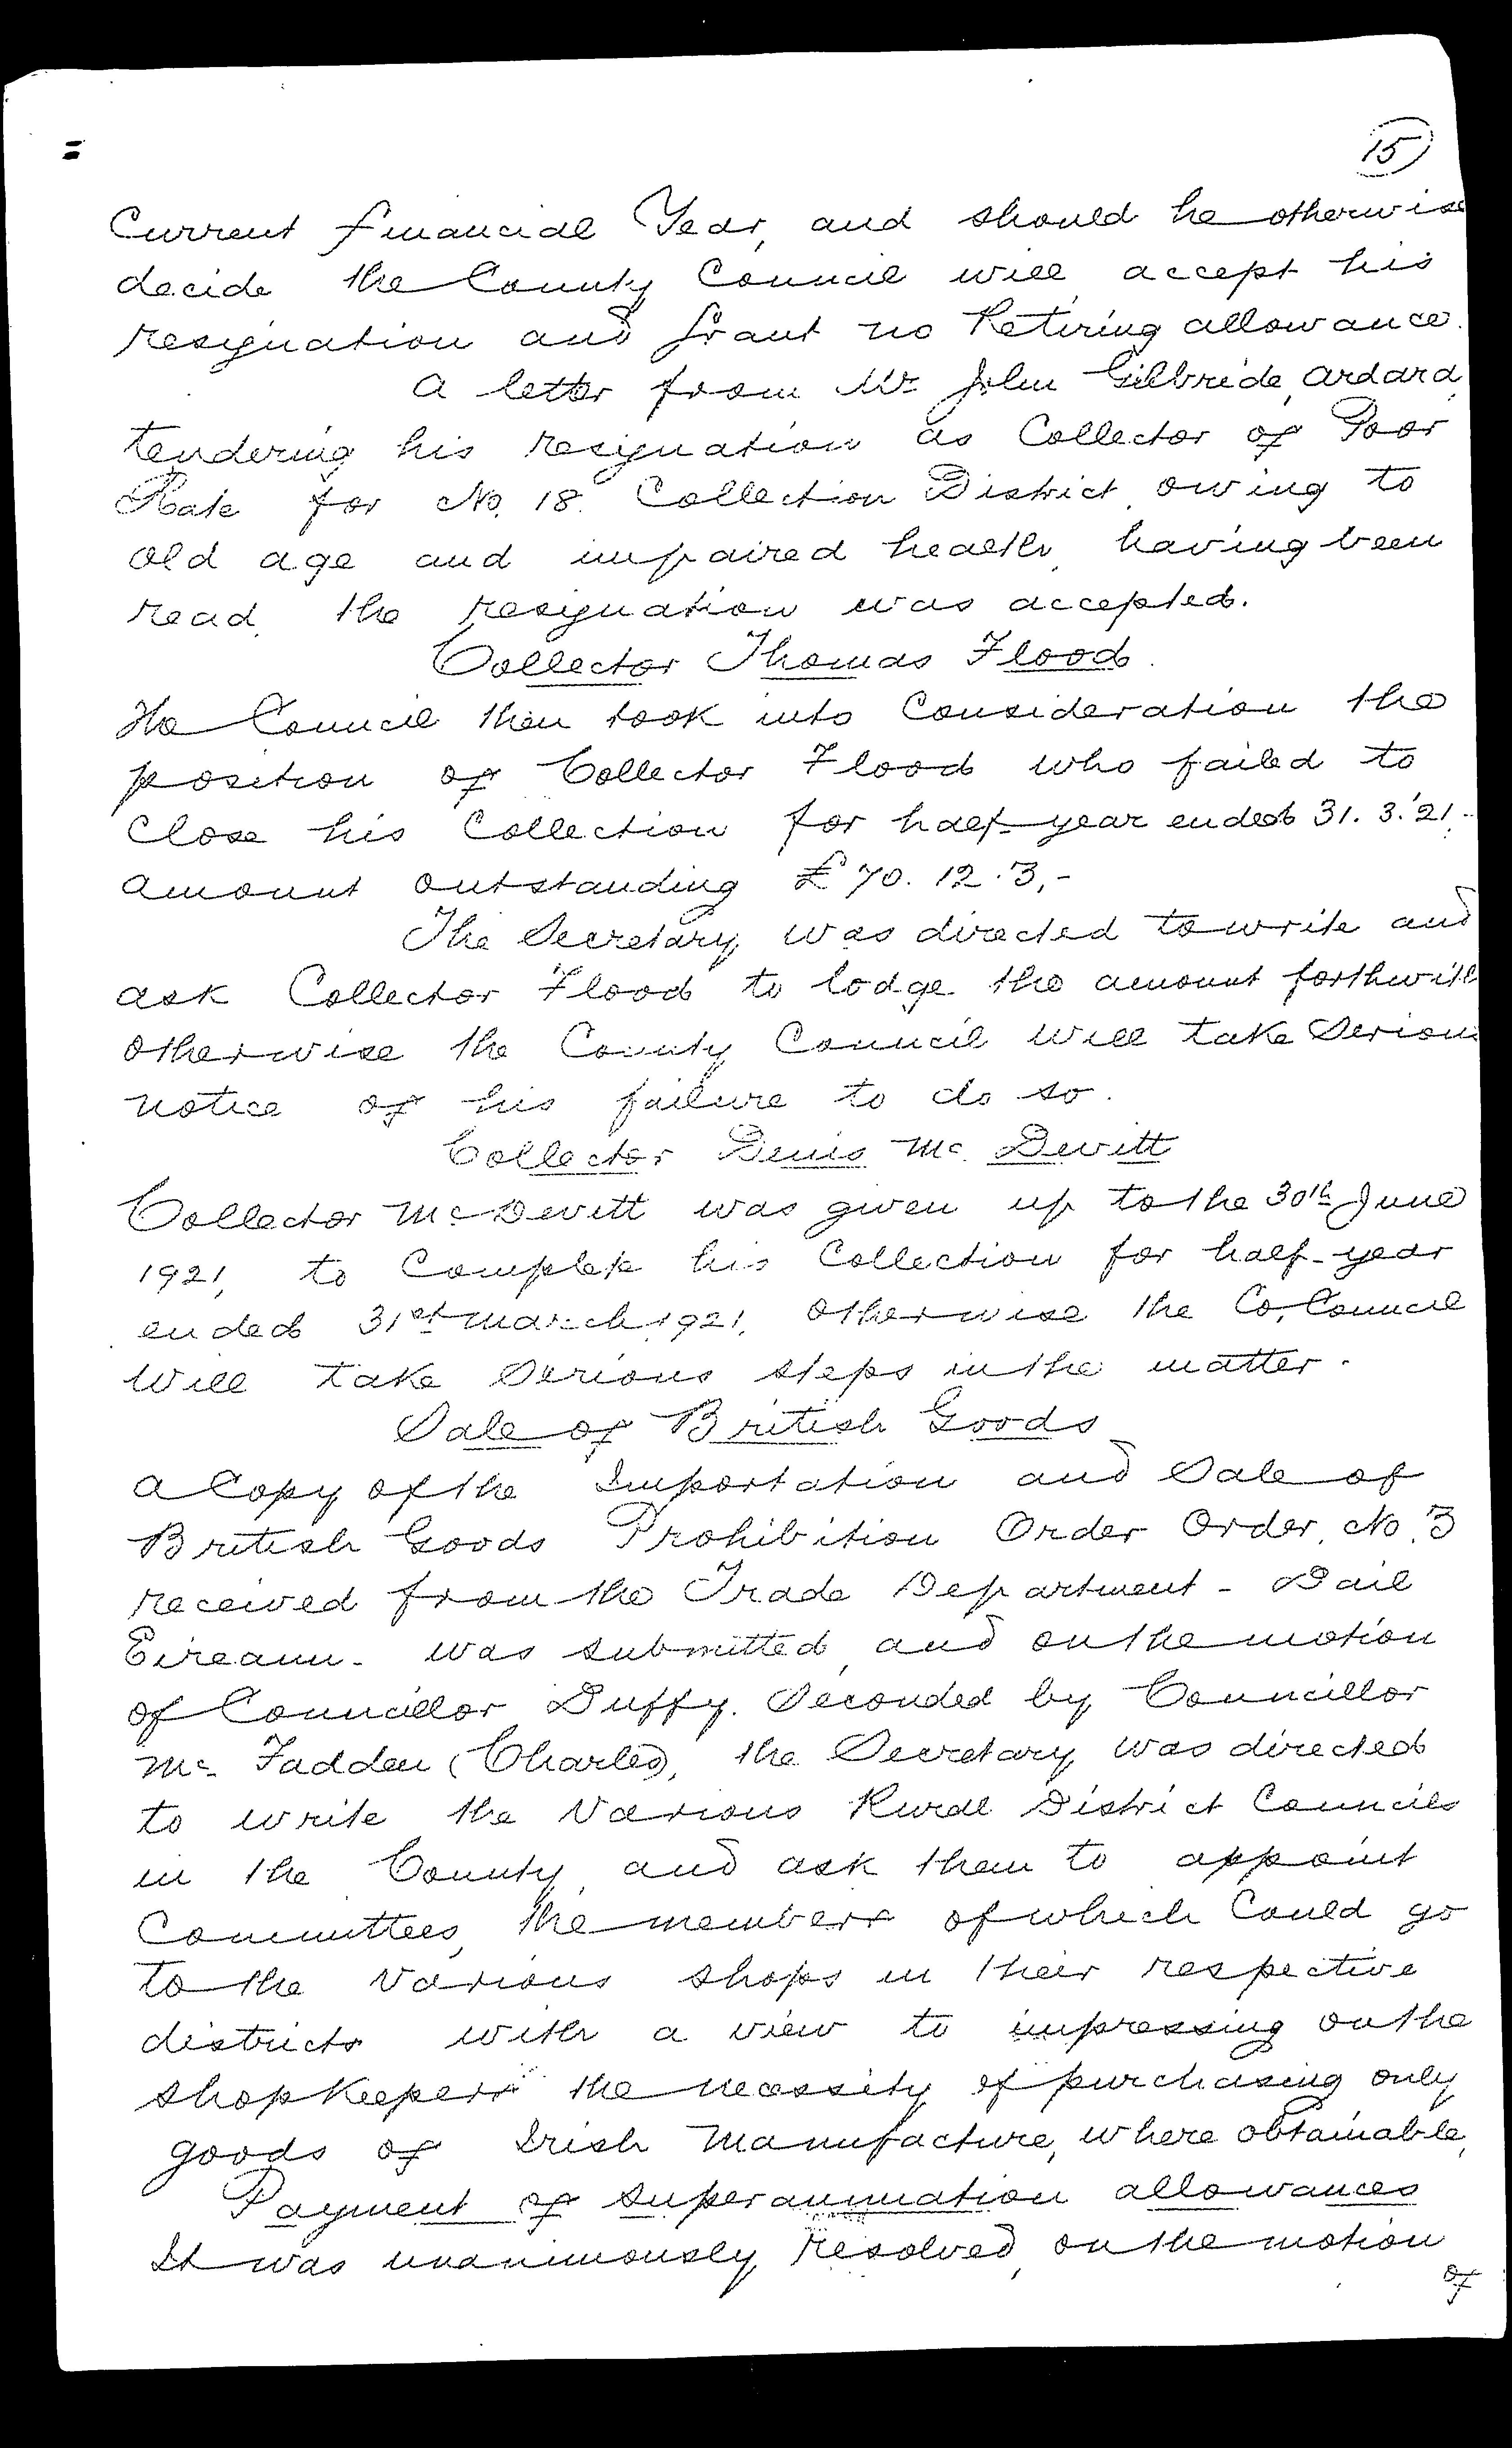 15
Current financial Year, and should he otherwise
decide the County Council will accept his
resignation and Grant no Retiring allowance.
A letter from Mr John Gilbride, Ardara,
tendering his resignation as Collector of Poor
Rate for No. 18. Collection District, owing to
old age and impaired health, having been
read, the resignation was accepted.
Collector Thomas Flood.
The Council then took into Consideration the
position of Collector Flood who failed to
Close his Collection for half-year ended 31. 3. '21 -
amount outstanding £70. 12. 3, -
The Secretary was directed to write and
ask Collector Flood to lodge the amount forthwith
otherwise the County Council will take Serious
notice of his failure to do so.
Collector Denis Mc Devitt
Collector McDevitt was given up to the 30th June
1921, to Complete his Collection for half-year
ended 31st March 1921, otherwise the Co. Council
will take Serious steps in the matter.
Sale of British Goods
A Copy of the Importation and Sale of
British Goods Prohibition Order Order, No. 3
received from the Trade Department - Dail
Eireann - was submitted, and on the motion
of Councillor Duffy. Seconded by Councillor
Mc Fadden (Charles), the Secretary was directed
to write the Various Rural District Councils
in the County, and ask them to appoint
Committees, the members of which Could go
to the various shops in their respective
districts with a view to impressing on the
shopkeepers the necessity of purchasing only
goods of Irish Manufacture, where obtainable,
Payment of superannuation allowances
It was unanimously resolved, on the motion
of